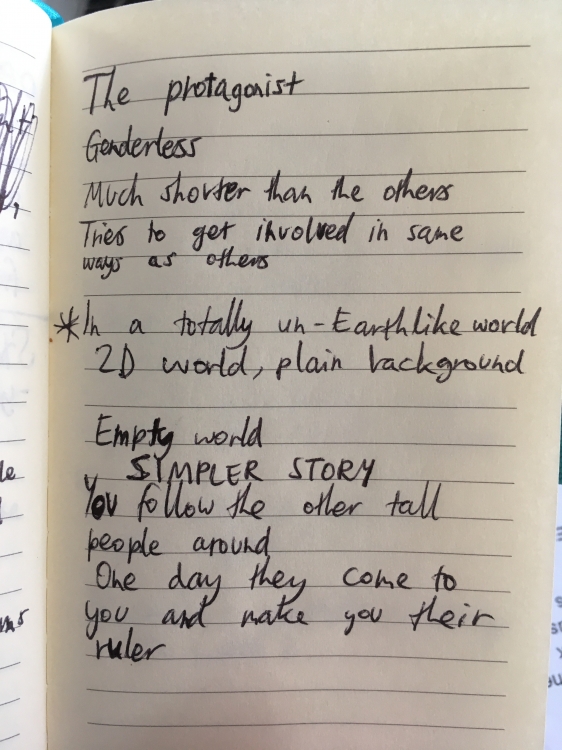 The protagonist
Genderless
Much shorter than the others
Tries to get involved in same
ways as others
*In a totally un-Earthlike world
2D world, plain background
Empty world
SYMPLER STORY
You follow the other tall
people around
One day they come to
you and make you their
ruler